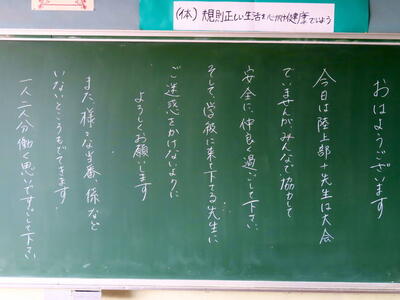 (体) 規則正しい生活を心掛け健康でいよう
おはようございます
今日は陸上部+先生は大会
でいませんがみんなで協力して
安全に、仲良く過ごして下さい
そして学校に来て下さる先生に
ご迷惑をかけないように
よろしくお願いします
また、様々な当番、係など
いないところもでてきます
一人二人分働く思いですごして下さい